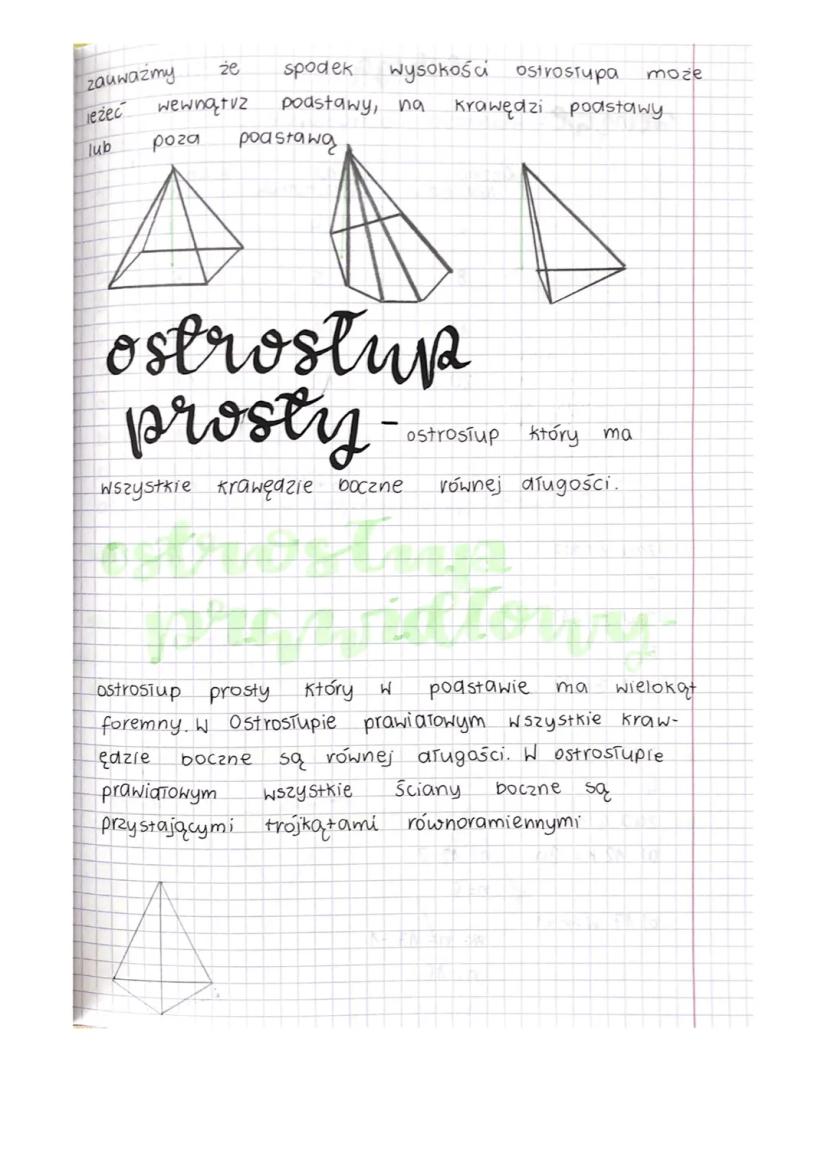 zauważmy że spodek wysokości ostrosłupa może
leżeć wewnątrz podstawy, na krawędzi podstawy
lub poza podstawą
ostrosłup
prosty - ostrosłup który ma
wszystkie krawędzie boczne równej długości.
ostrosłup
prawidłowy -
ostrosłup prosty który w podstawie ma wielokąt
foremny. W Ostrosłupie prawidłowym wszystkie kraw-
ędzie boczne są równej długości. W ostrosłupie
prawidłowym wszystkie ściany boczne są
przystającymi trójkątami równoramiennymi